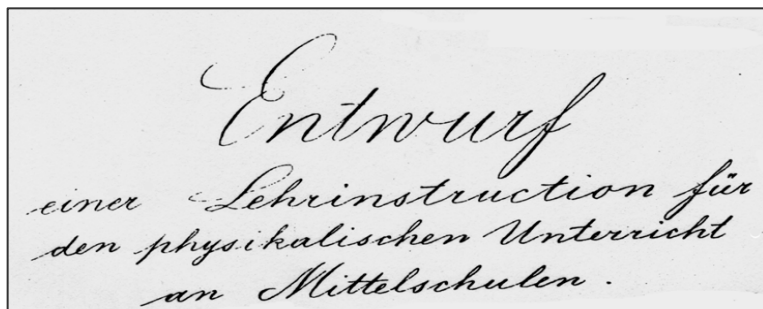 Entwurf
einer Lehrinstruction für
den physikalischen Unterricht
an Mittelschulen.